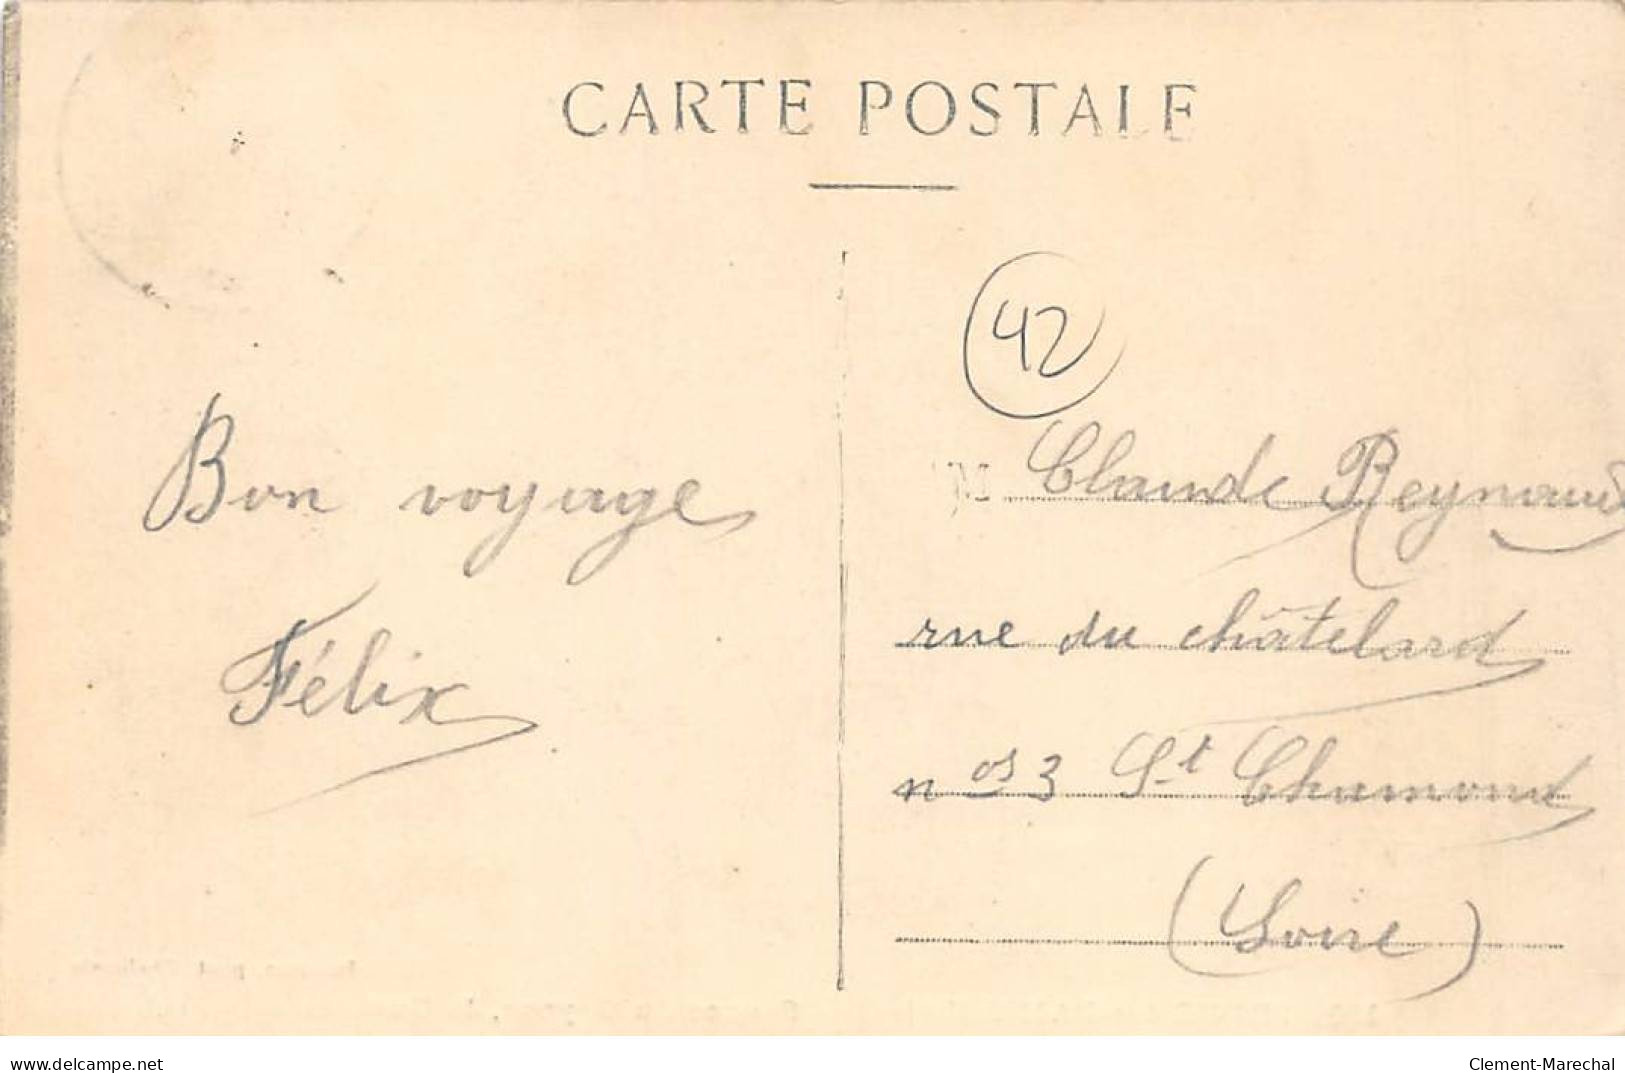 CARTE POSTALE
42
Bon voyage
Félix
M Claude Reynaud
rue du châtelard
nos 3 St Chamond
(Loire)
delcampe.net
Clement-Marechal